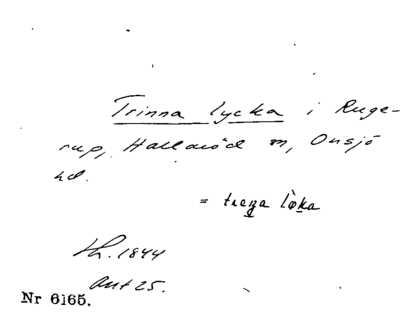 Trinna lycka i Ruge-
rup, Hallaröd sn, Onsjö
hd.
= trena løka
Lh. 1844
Ant 25.
Nr 6165.